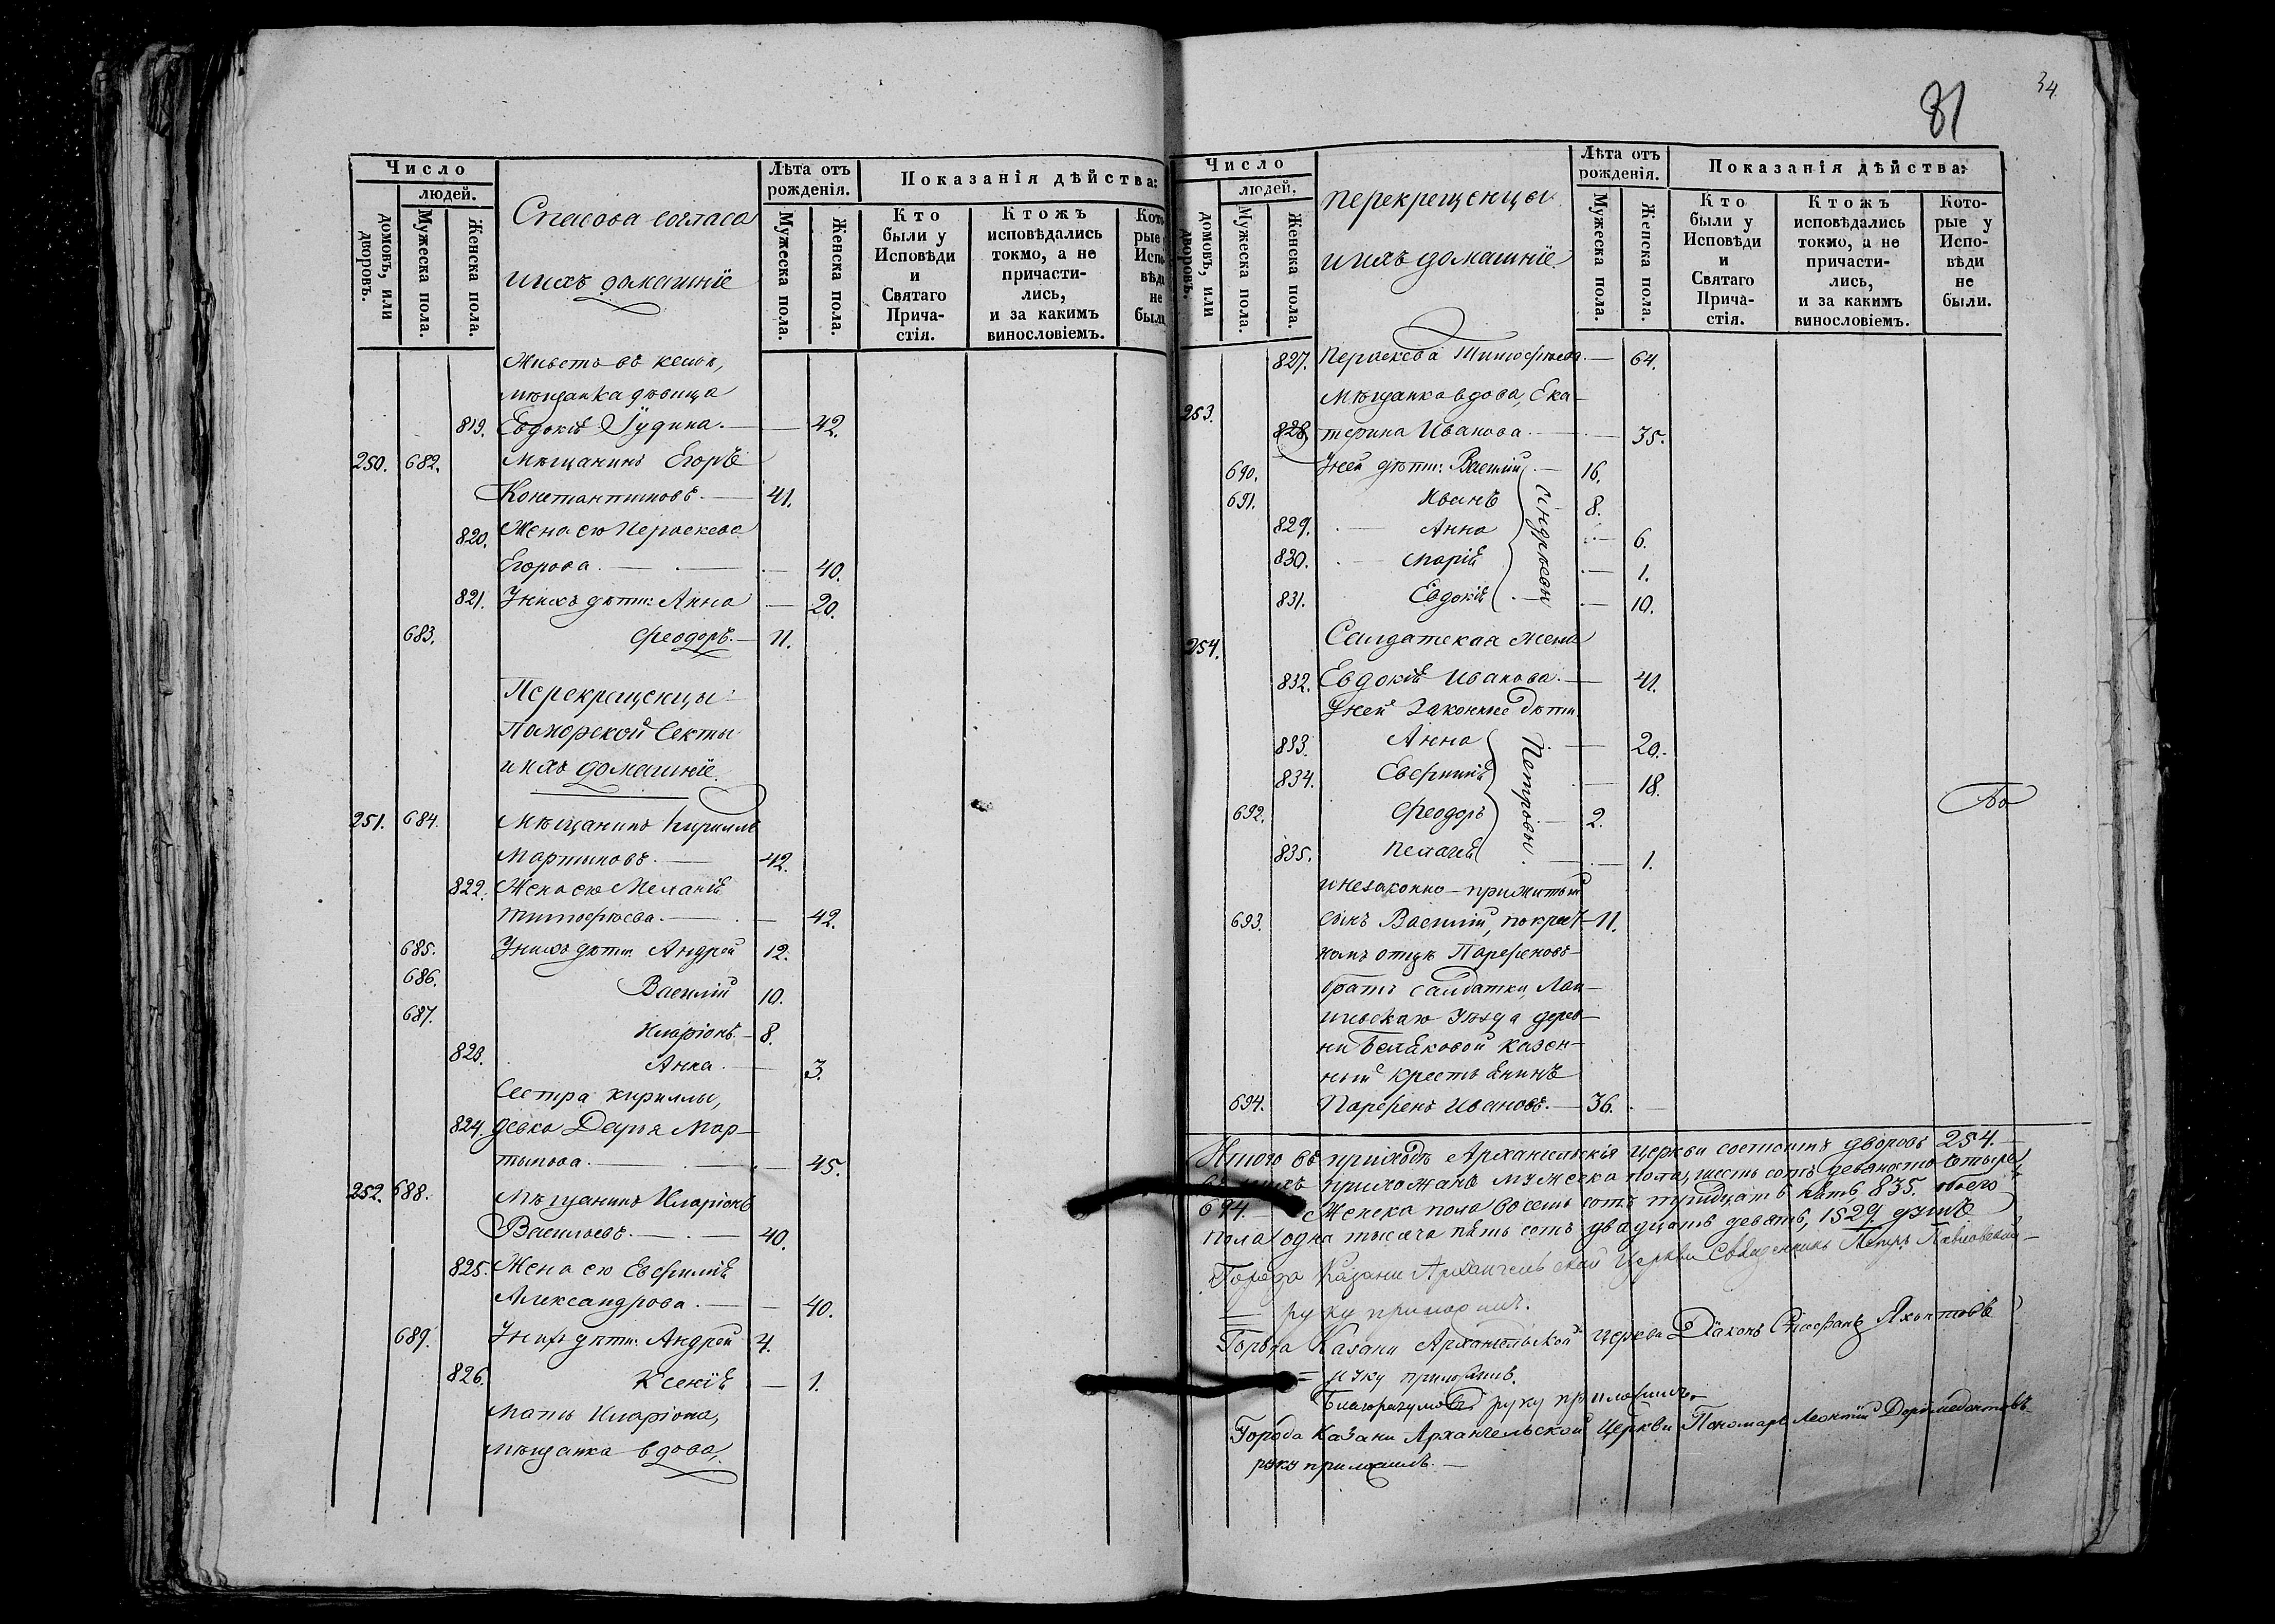 Число
людей.
домовъ, или дворовъ.
Мужеска пола.
Женска пола.
Спасова согласа
и ихъ домашніе
Лѣта отъ рожденія.
Мужеска пола.
Женска пола.
Показанія дѣйства:
Кто были у Исповѣди и Святаго Прича-стія.
Ктожъ исповѣдались токмо, а не причасти-лись, и за какимъ винословіемъ.
Живетъ въ кельѣ,
мѣщанка дѣвица
819. Евдокія Іудина. — 42.
250. 682. Мѣщанинъ Егоръ
Константиновъ. — 41.
820. Жена его Параскева
Егорова. — 40.
821. У нихъ дѣти: Анна — 20.
683. Феодоръ. — 11.
Перекрещенцы
Поморской секты
и ихъ домашніе.
251. 684. Мѣщанинъ Кириллъ
Мартиновъ. — 42.
822. Жена его Меланія
Тимофѣева. — 42.
685. У нихъ дѣти: Андрей 12.
686. Василій 10.
687. Иларіонъ. — 8.
823. Анна. — 3.
Сестра Кириллы,
824. девка Дарья Мар-
тынова. — 45.
252. 688. Мѣщанинъ Иларіонъ
Васильевъ. — 40.
825. Жена его Евфимія
Александрова. — 40.
689. У нихъ дѣти: Андрей 4.
826. Ксенія — 1.
Мать Иларіона,
мѣщанка вдова,
81
34.
Число
людей.
домовъ, или дворовъ.
Мужеска пола.
Женска пола.
перекрещенцы
и ихъ домашніе.
Лѣта отъ рожденія.
Мужеска пола.
Женска пола.
Показанія дѣйства:
Кто были у Исповѣди и Святаго Прича-стія.
Ктожъ исповѣдались токмо, а не причасти-лись, и за какимъ винословіемъ.
Кото-рые у Испо-вѣди не были.
827. Параскева Тимофѣева — 64.
253. Мѣщанка вдова, Ека-
828. терина Иванова. — 35.
690. У ней дѣти: Василій — 16.
691. Иванъ 8.
829. Анна — 6.
830. Марія — 1.
831. Евдокія — 10.
Андрѣевы
254. Салдатская жена
832. Евдокія Иванова. — 41.
У ней законные дѣти
833. Анна — 20.
834. Евфимія — 18.
692. Феодоръ — 2.
835. Пелагія — 1.
Петровы.
и незаконно-прижитый
693. сынъ Василій, по крест- 11.
номъ отцѣ Парфеновъ
братъ салдатки, Лаи-
шевскаго уѣзда дерев-
ни Беляковой казен-
ный крестьянинъ
694. Парфенъ Ивановъ. — 36.
Итого въ приходѣ Архангельскія церкви состоитъ дворовъ 254. —
въ нихъ прихожанъ мужеска пола, шесть сотъ девяносто четыре,
694. Женска пола восемь сотъ тридцать пять, 835. обоего
пола одна тысяча пять сотъ двадцать девять, 1529. душъ
Города Казани Архангельской Церкви Священникъ Петръ Павловскій
руку приложилъ.
Города Казани Архангельской церкви Діаконъ Стефанъ
= руку приложилъ.
Благоразумовъ руку приложилъ.
Города Казани Архангельской Церкви Пономарь Леонтій Доримедонтовъ
руку приложилъ. —